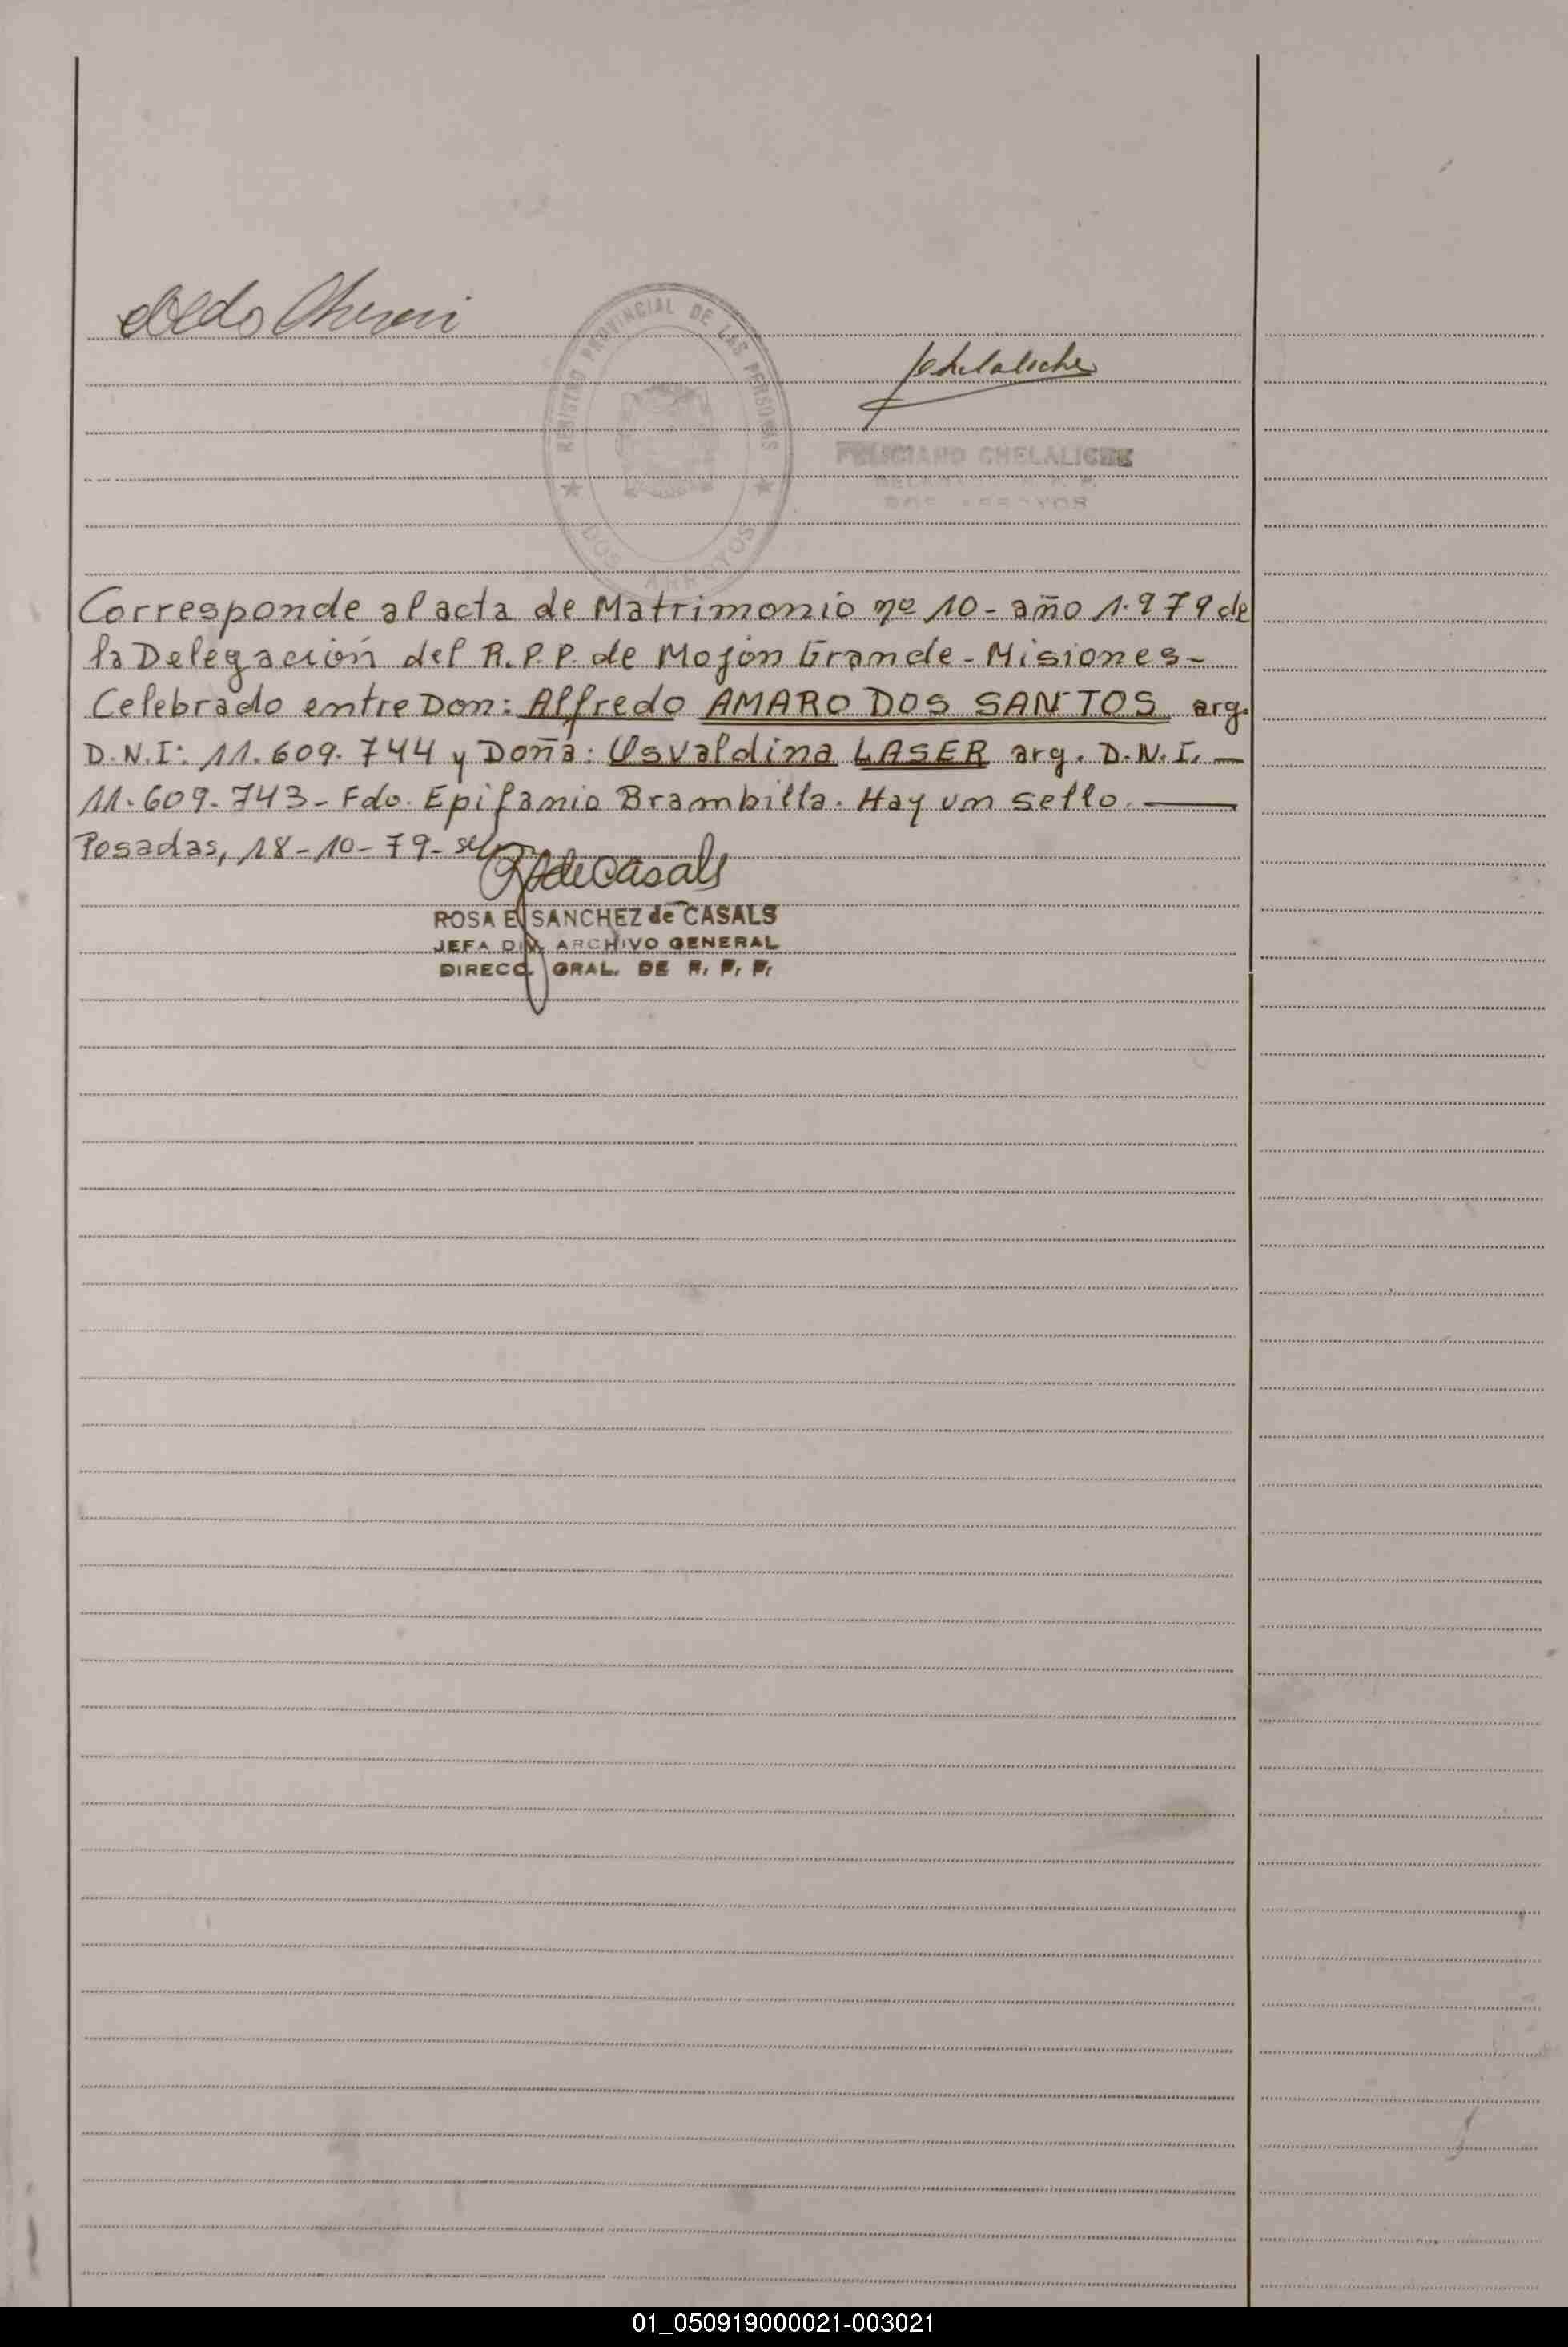 REGISTRO PROVINCIAL DE LAS PERSONAS
DOS ARROYOS
FELICIANO CHELALICHE
DOS ARROYOS
Corresponde al acta de Matrimonio nº 10 - año 1.979 de
la Delegación del R.P.P. de Mojón Grande - Misiones -
Celebrado entre Don: Alfredo AMARO DOS SANTOS arg.
D.N.I: 11.609.744 y Doña: Usvaldina LASER arg. D.N.I. —
11.609.743 - Fdo. Epifanio Brambilla. Hay un sello. —
Posadas, 18-10-79-
ROSA E. SANCHEZ de CASALS
JEFA DIV. ARCHIVO GENERAL
DIRECC. GRAL. DE R. P. P.
01_050919000021-003021